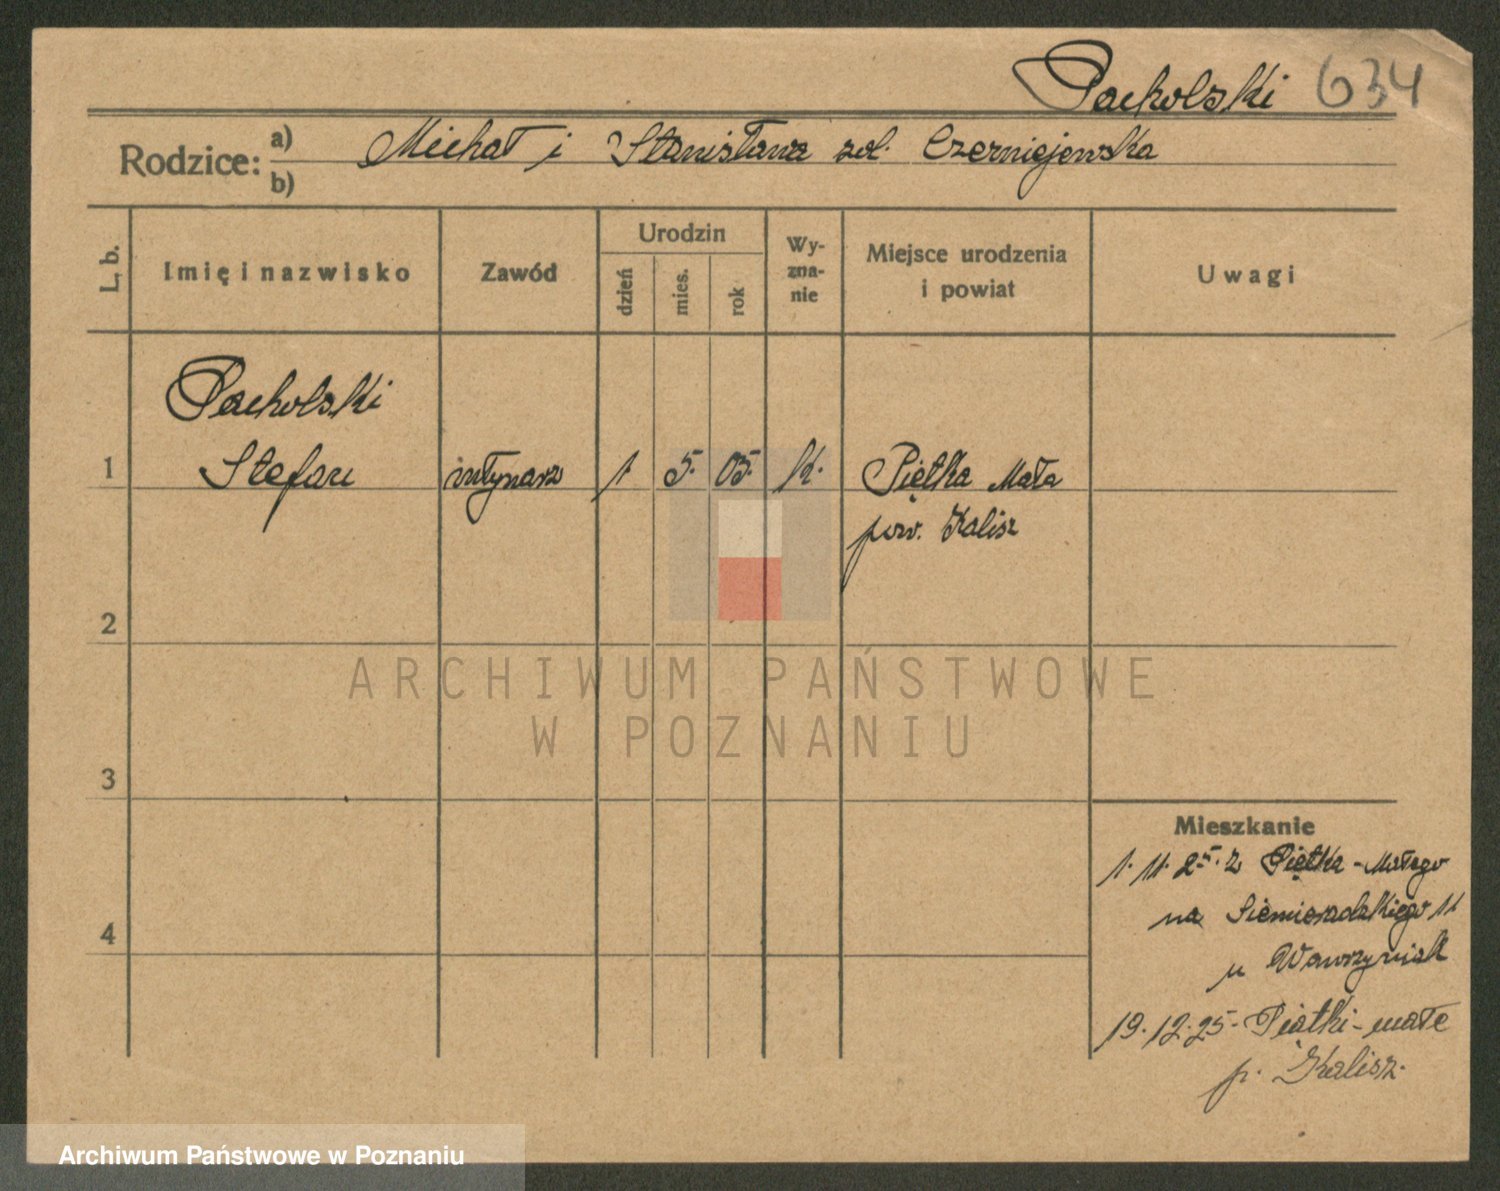 Pacholski 634
Rodzice: a) Michał i Stanisława zd. Czerniejewska
b)
L. b. Imię i nazwisko Zawód Urodzin dzień mies. rok Wyzna-nie Miejsce urodzenia i powiat Uwagi
Pacholski
1 Stefan młynarz 1. 5. 05. k. Piętka Mała
pow. Kalisz
2
ARCHIWUM PAŃSTWOWE
W POZNANIU
3
Mieszkanie
1. 11. 25. z Piętka-Małego
na Siemieradzkiego 11
4
u Wawrzyniak
19. 12. 25 - Piątki-małe
p. Kalisz.
Archiwum Państwowe w Poznaniu